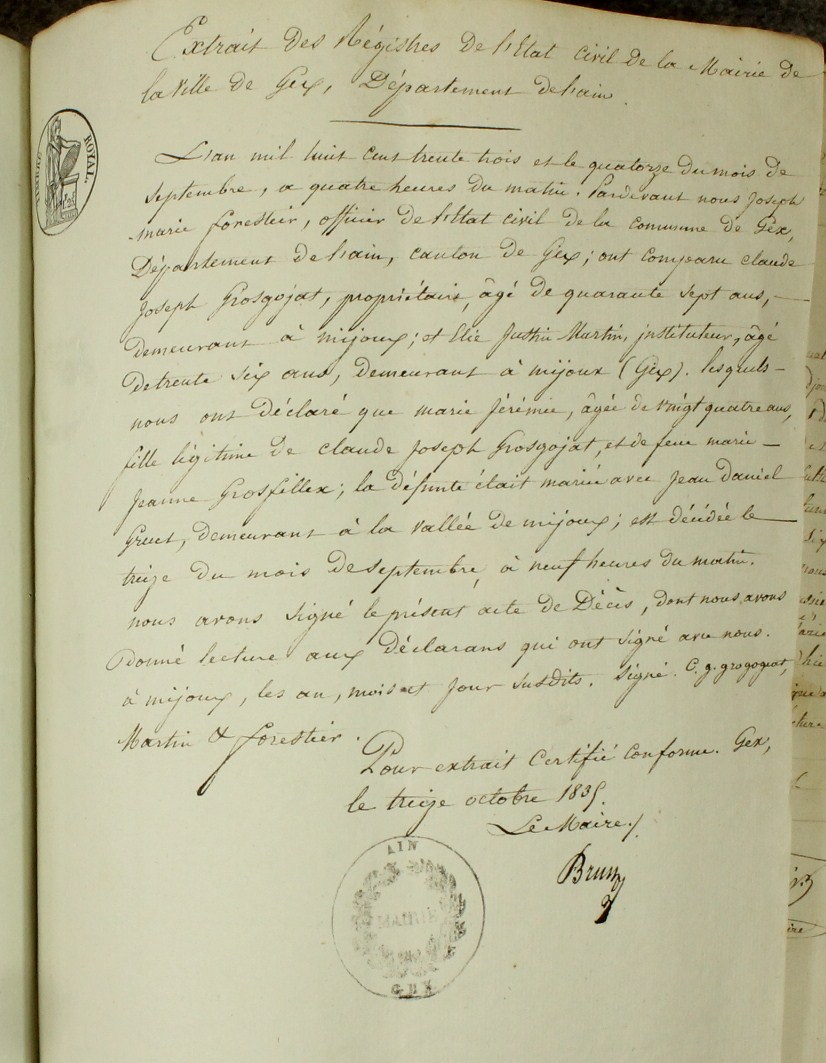 Extrait des Régistres de l'Etat civil de la Mairie de
la Ville de Gex, Département de l'ain.
TIMBRE ROYAL.
L'an mil huit cent trente trois et le quatorze du mois de
septembre, a quatre heures du matin. Pardevant nous Joseph
marie forestier, officier de l'Etat civil de la commune de Gex,
Département de l'ain, canton de Gex; ont comparu claude
Joseph Grosgojat, propriétaire, âgé de quarante sept ans, —
demeurant à mijoux; et Elie Justin Martin, instituteur, âgé
de trente six ans, demeurant à mijoux (Gex). lesquels -
nous ont déclaré que marie Jérémie, âgée de vingt quatre ans,
fille légitime de claude Joseph Grosgojat, et de feue marie —
Jeanne Grosfillex; la défunte était mariée avec Jean Daniel
Gruet, demeurant à la vallée de mijoux; est décédée le —
treize du mois de septembre, à neuf heures du matin.
nous avons signé le présent acte de Décès, dont nous avons
donné lecture aux déclarans qui ont signé avec nous.
à mijoux, les an, mois et jour susdits. signé. C. g. grogogeat,
Martin & forestier.
Pour extrait Certifié Conforme. Gex,
le treize octobre 1835.
Le Maire,
AIN
MAIRIE
GEX